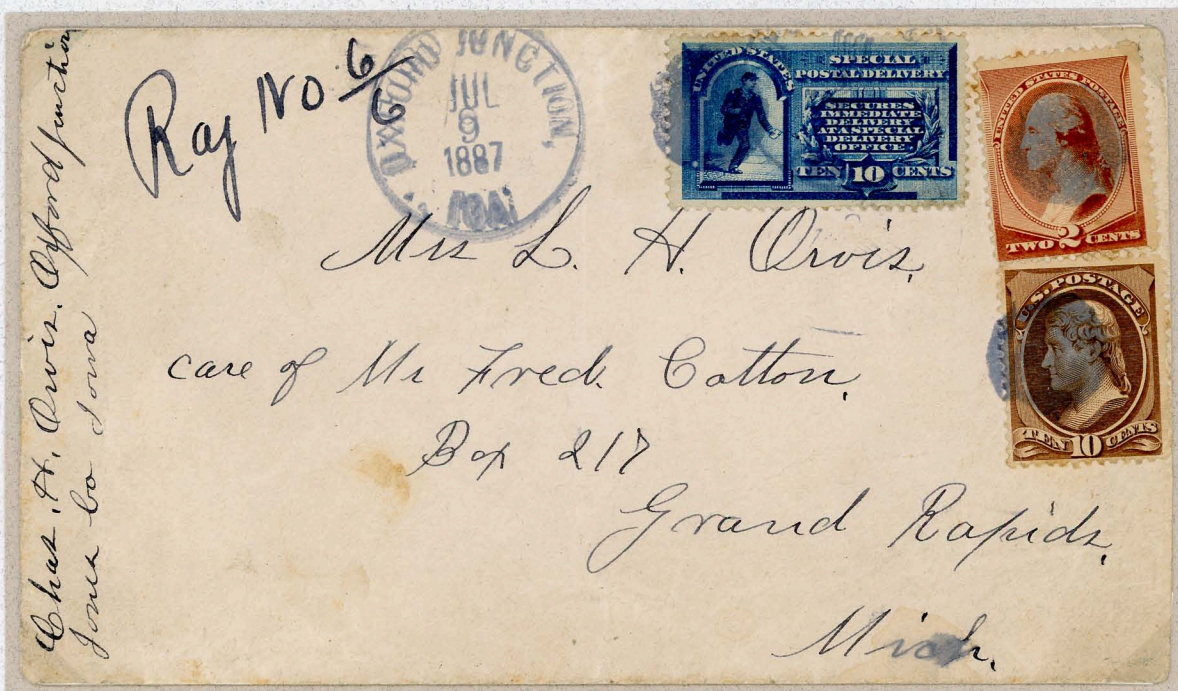 Chas. H. Orvis. Oxford Junction
Jones Co Iowa
Reg No 6/6
OXFORD JUNCTION,
JUL
9
1887
IOWA
UNITED STATES
SPECIAL
POSTAL DELIVERY
SECURES
IMMEDIATE
DELIVERY
AT A SPECIAL
DELIVERY
OFFICE.
TEN 10 CENTS
UNITED STATES POSTAGE
TWO 2 CENTS
U.S. POSTAGE
TEN 10 CENTS
Mrs L. H. Orvis,
care of Mr Fred. Cotton,
Box 217
Grand Rapids,
Mich.